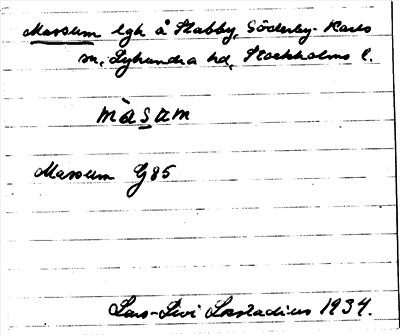 Massum lgh å Stabby, Söderby-Karls
sn, Lyhundra hd, Stockholms l.
màsum
Massum G85
Lars-Levi Læstadius 1934.